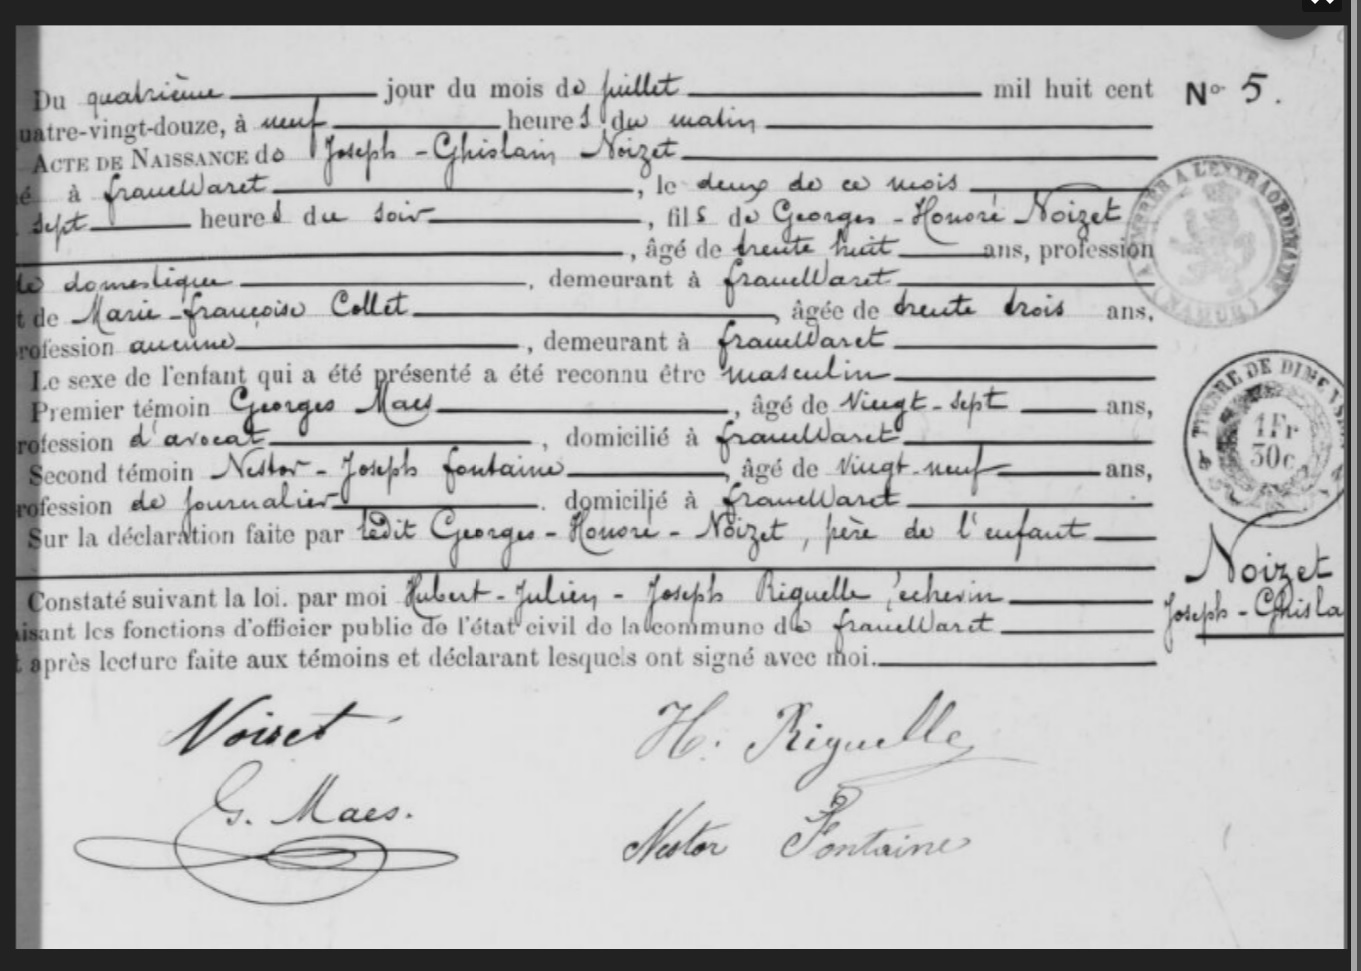 Du quatrième jour du mois de juillet mil huit cent
uatre-vingt-douze, à neuf heures du matin
ACTE DE NAISSANCE de Joseph-Ghislain Noizet
é à francWaret, le deux de ce mois
sept heures du soir, fils de Georges-Honoré Noizet
, âgé de trente huit ans, profession
de domestique, demeurant à francWaret
t de Marie-françoise Collet, âgée de trente trois ans,
rofession aucune, demeurant à francWaret
Le sexe de l'enfant qui a été présenté a été reconnu être masculin
Premier témoin Georges Maes, âgé de Vingt-sept ans,
rofession d'avocat, domicilié à francWaret
Second témoin Nestor-Joseph fontaine, âgé de Vingt-neuf ans,
rofession de journalier. domicilié à francWaret
Sur la déclaration faite par ledit Georges-Honoré-Noizet, père de l'enfant
Constaté suivant la loi. par moi Hubert-Julien-Joseph Riguelle, échevin
isant les fonctions d'officier public de l'état civil de la commune de francWaret
t après lecture faite aux témoins et déclarant lesquels ont signé avec moi.
No 5.
A L'EXTRAORDINAIRE
(NAMUR)
TIMBRE DE DIMENSI
1Fr
30c
Noizet
Joseph-Ghisla
Noizet
H. Riguelle
G. Maes.
Nestor Fontaine